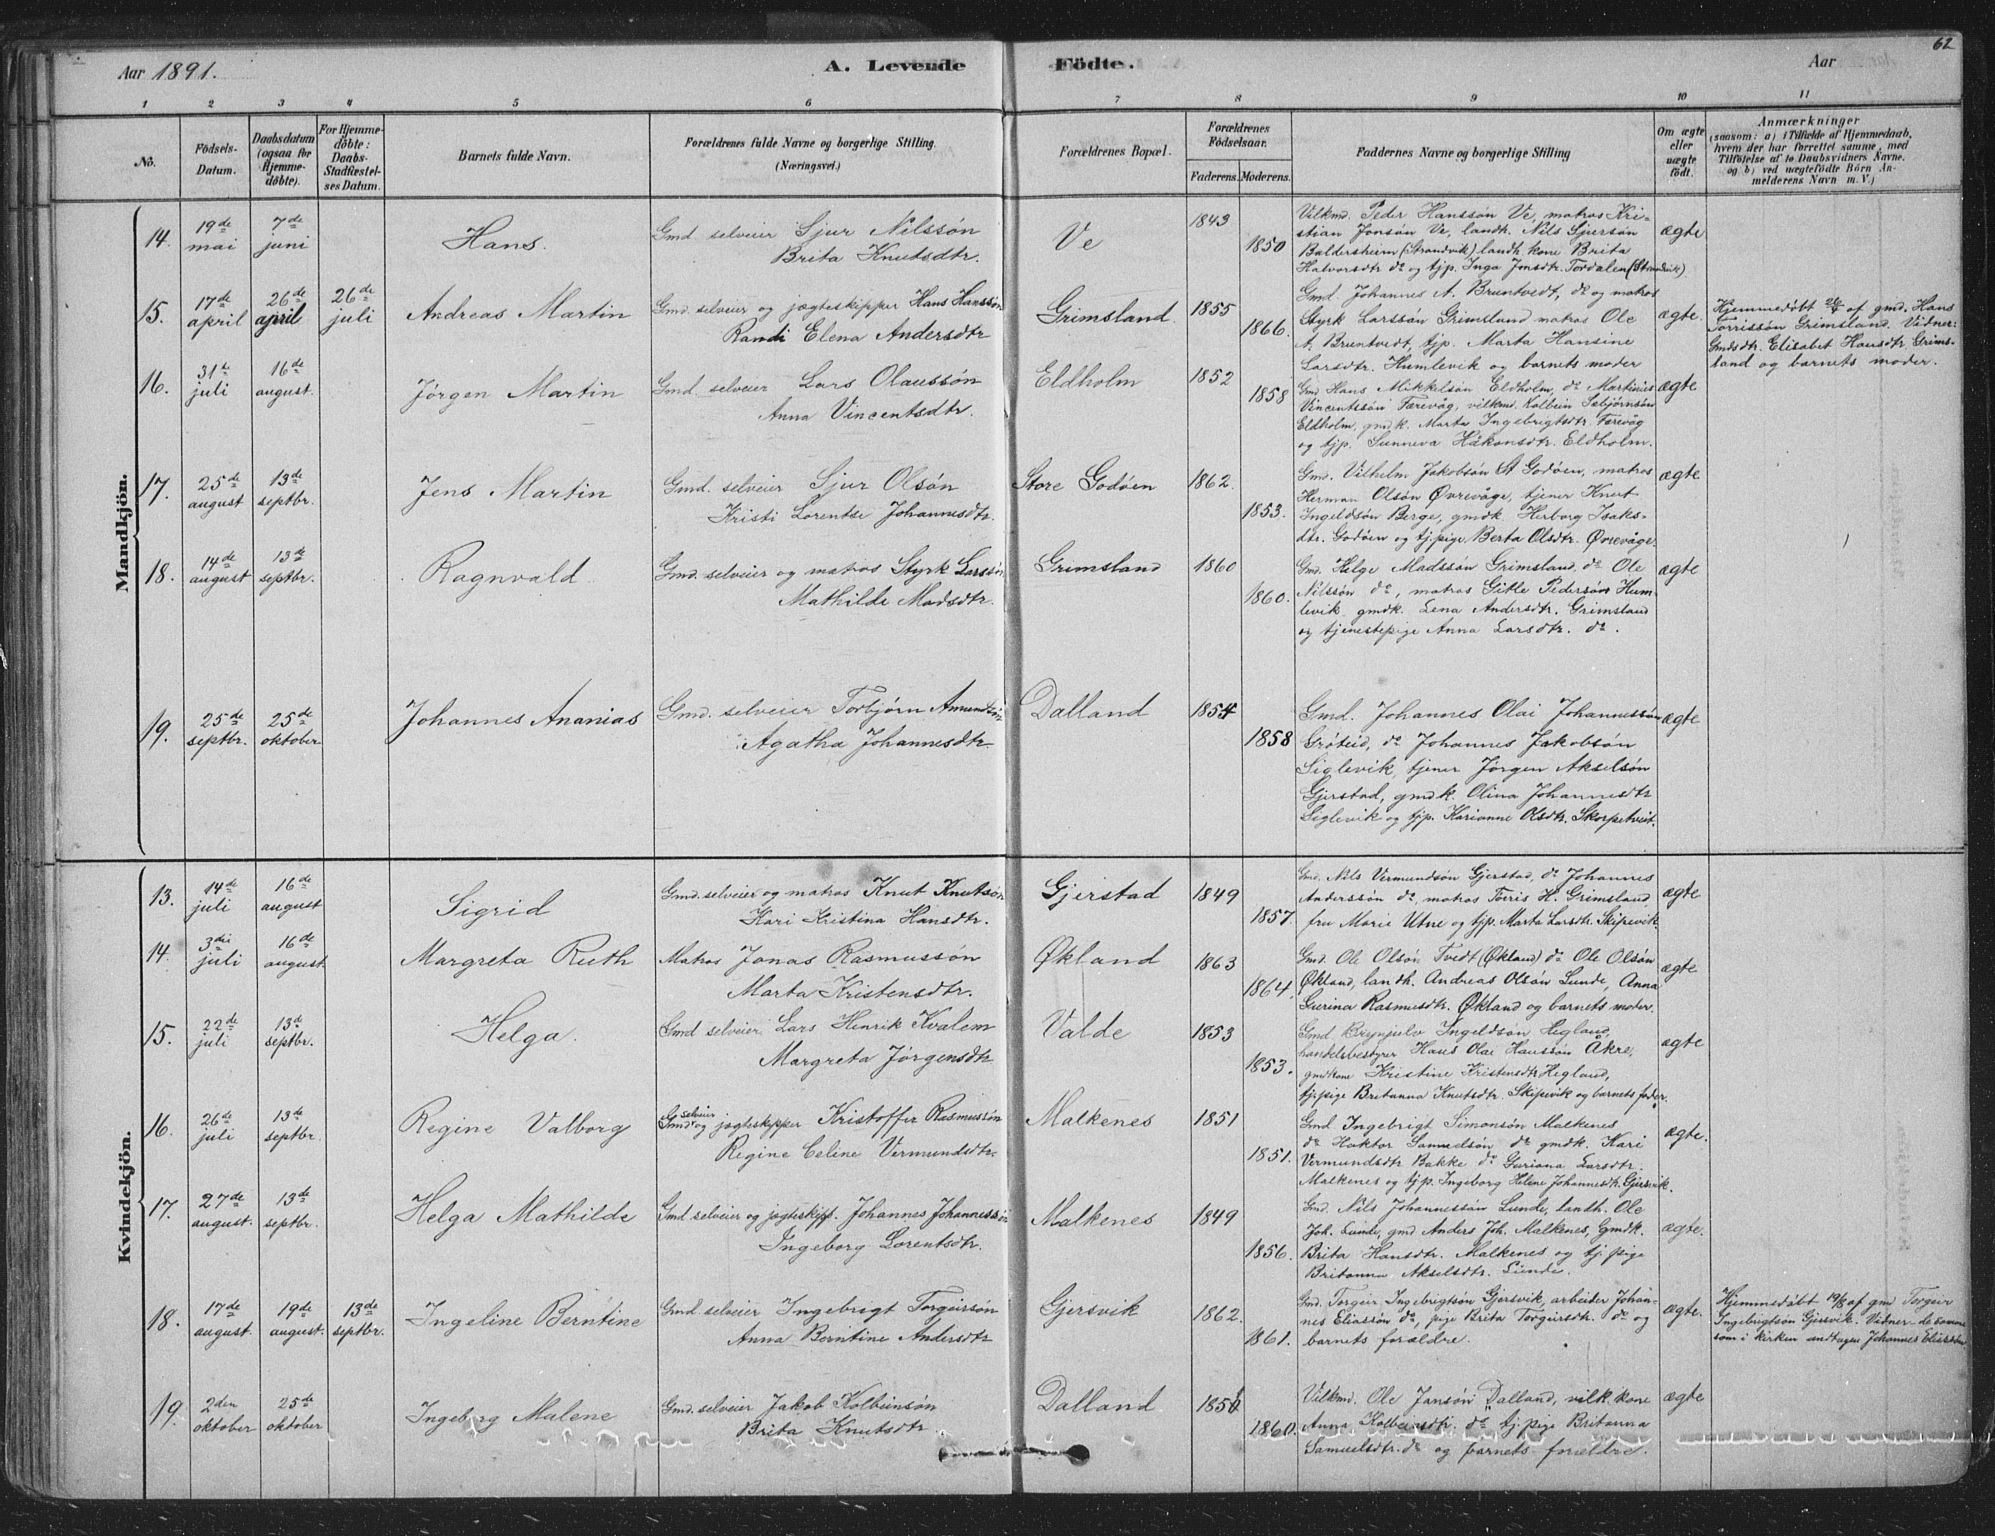 62
Aar 1891. A. Levende Födte. Aar
1 2 3 4 5 6 7 8 9 10 11
No.
Födsels-
Datum.
Daabsdatum
(ogsaa for
Hjemme-
döbte).
For Hjemme-
döbte:
Daabs-
Stadfæstel-
ses Datum.
Barnets fulde Navn.
Forældrenes fulde Navne og borgerlige Stilling.
(Næringsvei.)
Forældrenes Bopæl.
Forældrenes
Födselsaar.
Faderens. Moderens.
Faddernes Navne og borgerlige Stilling
Om ægte
eller
uægte
födt.
Anmærkninger
(saasom: a) i Tilfælde af Hjemmedaab,
hvem der har forrettet samme, med
Tilföielse af to Daabsvidners Navne.
og b) ved uægtefödte Börn An-
melderens Navn m. V.)
Mandkjön.
14. 19de mai 7de juni Hans. Gmd selveier Sjur Nilssön
Brita Knutsdtr.
Ve 1843 1850
Vilkmd. Peder Hanssön Ve, matros Kri-
stian Jonsön Ve, landh. Nils Sjursön
Baldersheim (Strandvik) landh. kone Brita
Halvorsdtr do og tjp. Inga Jonsdtr. Tordalen (Strandvik)
ægte
15. 17de april 26de april 26de juli Andreas Martin Gmd selveier og jægteskipper Hans Hanssön
Randi Elena Andersdtr
Grimsland. 1855 1866.
Gmd Johannes A. Bruntvedt, do og matros
Styrk Larssön Grimsland matros Ole
A. Bruntvedt, tjp. Marta Hansine
Larsdtr. Humlevik og barnets moder
ægte.
Hjemmedöbt 26/4 af gmd. Hans
Torrissön Grimsland. Vidner:
Gmdsdtr. Elisabet Hansdtr. Grims-
land og barnets moder.
16. 31te juli 16de august. Jörgen Martin Gmd selveier Lars Olaussön
Anna Vincentsdtr.
Eldholm 1852 1858
Gmd Hans Mikkelsön Eldholm, do Martinus
Vincentssön Færevåg, vilkmd. Kolbein Sebjörnsön
Eldholm, gmdk. Marta Ingebrigtsdtr Færevåg
og tjp. Sunneva Håkonsdtr. Eldholm.
ægte
17. 25de august 13de septbr. Jens Martin Gmd. selveier Sjur Olsön
Kristi Lorentse Johannesdtr.
Store Godöen 1862. 1853.
Gmd. Vilhelm Jakobsön St Godöen, matros
Herman Olsön Øvrevåge, tjener Knut
Ingeldsön Berge, gmdk. Herborg Isaks-
dtr. Godöen og tj.pige Berta Olsdtr. Øvrevåge.
ægte
18. 14de august 13de septbr. Ragnvald. Gmd. selveier og matros Styrk Larssön
Mathilde Madsdtr.
Grimsland 1860 1860.
Gmd. Helge Madssön Grimsland, do Ole
Nilssön do, matros Gitle Pedersön Hum-
levik gmdk. Lena Andersdtr. Grimsland
og tjenestepige Anna Larsdtr. do.
ægte
19. 25de septbr. 25de oktober Johannes Ananias Gmd. selveier Torbjörn Amundsön
Agatha Johannesdtr
Dalland 1854 1858
Gmd. Johannes Olai Johannessön
Gröteid, do Johannes Jakobsön
Siglevik, tjener Jörgen Akselsön
Gjerstad, gmdk. Olina Johannesdtr
Siglevik og tjp. Karianne Olsdtr. Skorpetveit.
ægte
Kvindekjön.
13. 14de juli 16de august Sigrid Gmd. selveier og matros Knut Knutsön
Kari Kristina Hansdtr.
Gjerstad 1849 1857.
Gmd. Nils Vermundsön Gjerstad, do Johannes
Anderssön do, matros Torris H. Grimsland
fru Marie Utne og tjp. Marta Larsdtr. Skipevik.
ægte
14. 3die juli 16de august. Margreta Ruth Matros Jonas Rasmussön
Marta Kristensdtr.
Økland 1863 1864.
Gmd. Ole Olsön Tvedt (Økland) do Ole Olsön
Økland, landh. Andreas Olsön Lunde, Anna
Gurina Rasmusdtr. Økland og barnets moder.
ægte
15. 22de juli 13de septbr. Helga. Gmd selveier Lars Henrik Kvalem
Margreta Jörgensdtr
Valde 1853 1853.
Gmd Brynjulv Ingeldsön Hegland
handelsbestyrer Hans Olai Hanssön Åkre,
gmdkone Kristine Kristensdtr Hegland,
tj.pige Britanna Knutsdtr. Skipevik og barnets fader.
ægte
16. 26de juli 13de septbr. Regine Valborg Gmd selveier og jægteskipper Kristoffer Rasmussön
Regine Celine Vermundsdtr.
Malkenes 1851 1851.
Gmd Ingebrigt Simonsön Malkenes
do Haktor Samuelsön do gmdk. Kari
Vermundsdtr Bakke do Guriana Larsdtr.
Malkenes og tjp. Ingeborg Helene Johannesdtr. Gjersvik.
ægte.
17. 27de august. 13de septbr. Helga Mathilde Gmd selveier og jægteskipp. Johannes Johannessön
Ingeborg Lorentsdtr.
Malkenes 1849 1856.
Gmd. Nils Johannessön Lunde, landh. Ole
Joh. Lunde, gmd Anders Joh. Malkenes, Gmdk.
Brita Hansdtr. Malkenes og tj.pige
Britanna Akselsdtr. Lunde.
ægte.
18. 17de august 19de august. 13de septbr. Ingeline Berntine Gmd. selveier Ingebrigt Torgeirsön
Anna Berntine Andersdtr
Gjersvik 1862. 1861.
Gmd. Torgeir Ingebrigtsön Gjersvik, arbeider Johan-
nes Eliassön do, pige Brita Torgeirsdtr. do og
barnets forældre.
ægte.
Hjemmedöbt 19/8 af gmd Torgeir
Ingebrigtsön Gjersvik. Vidner de samme
som i kirken undtagen Johannes Eliassön
19. 2den oktober 25de oktober Ingeborg Malene Gmd. selveier Jakob Kolbeinsön
Brita Knutsdtr.
Dalland 1860.
Vilkmd. Ole Jansön Dalland, vilk.kone
Anna Kolbeinsdtr. do tj.pige Britanna
Samuelsdtr. do og barnets forældre.
ægte